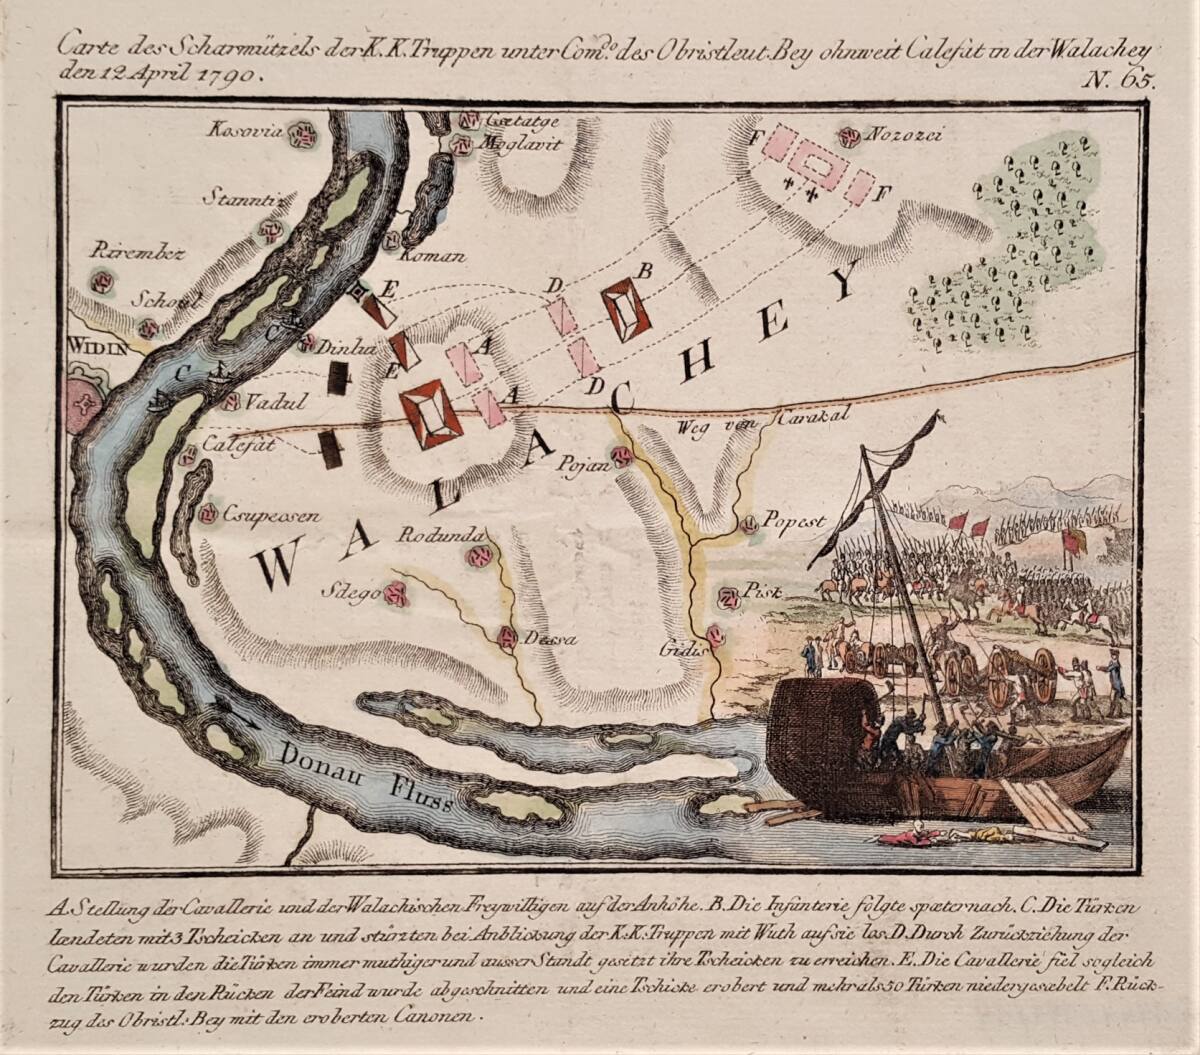 Carte des Scharmützels der K.K. Truppen unter Com.do des Obristleut. Bey ohnweit Calefat in der Walachey
den 12 April 1790.
N. 65.
Kosovia
Csetatge
Moglavit
F
Nozozei
F
Stanntiz
Koman
Rirembez
E
B
D
Schoul
C
Dinlui
WIDIN
A
E
D
C
Vadul
A
Weg von Carakal
Calefat
Pojan
WALACHEY
Csupecsen
Popest
Rodunda
Sdego
Pisk
Dessa
Gidis
Donau Fluss
A. Stellung der Cavallerie und der Walachischen Freywilligen auf der Anhöhe. B. Die Infanterie folgte spæter nach. C. Die Türken
lændeten mit 3 Tscheicken an und stürzten bei Anblickung der K.K. Truppen mit Wuth auf sie los. D. Durch Zurückziehung der
Cavallerie wurden die Türken immer muthiger und ausser Standt gesetzt ihre Tscheicken zu erreichen. E. Die Cavallerie fiel sogleich
den Türken in den Rücken der Feind wurde abgeschnitten und eine Tschicke erobert und mehr als 50 Türken niedergesæbelt F. Rück-
zug des Obristl: Bey mit den eroberten Canonen.